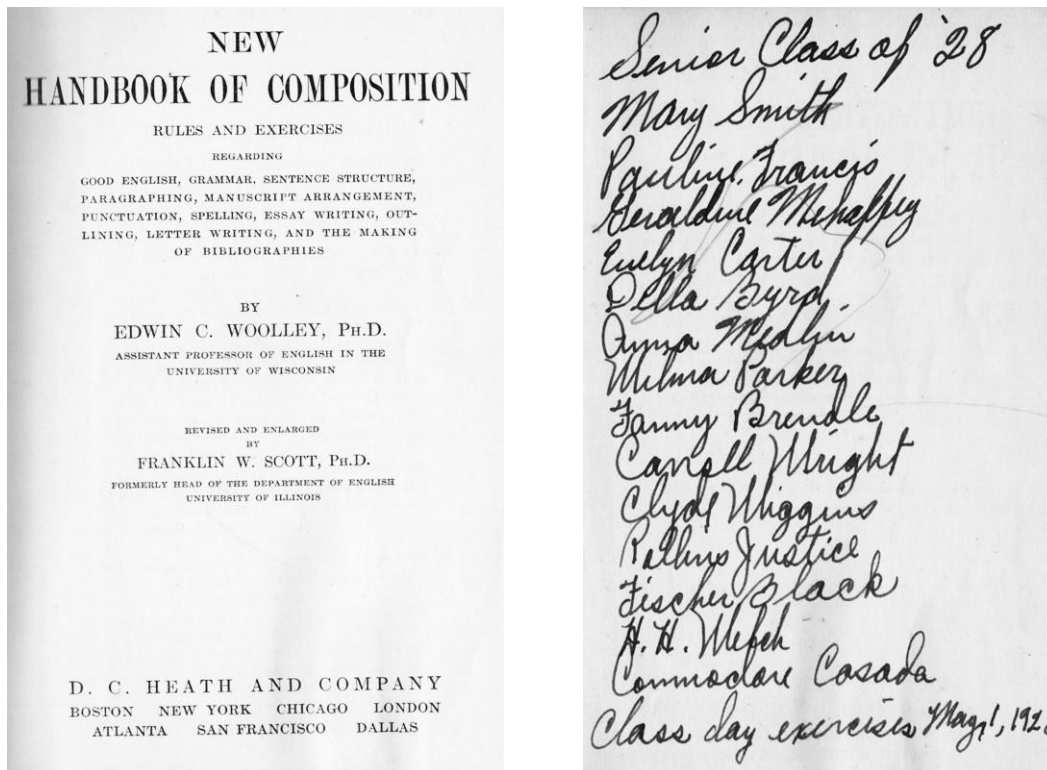 NEW
HANDBOOK OF COMPOSITION
RULES AND EXERCISES
REGARDING
GOOD ENGLISH, GRAMMAR, SENTENCE STRUCTURE,
PARAGRAPHING, MANUSCRIPT ARRANGEMENT,
PUNCTUATION, SPELLING, ESSAY WRITING, OUT-
LINING, LETTER WRITING, AND THE MAKING
OF BIBLIOGRAPHIES
BY
EDWIN C. WOOLLEY, PH.D.
ASSISTANT PROFESSOR OF ENGLISH IN THE
UNIVERSITY OF WISCONSIN
REVISED AND ENLARGED
BY
FRANKLIN W. SCOTT, PH.D.
FORMERLY HEAD OF THE DEPARTMENT OF ENGLISH
UNIVERSITY OF ILLINOIS
D. C. HEATH AND COMPANY
BOSTON NEW YORK CHICAGO LONDON
ATLANTA SAN FRANCISCO DALLAS
Senior Class of '28
Mary Smith
Pauline Francis
Geraldine Mehaffey
Evelyn Carter
Della Byrd
Anna Medlin
Wilma Parker
Fanny Brendle
Carroll Wright
Clyde Wiggins
Rollins Justice
Fischer Black
H. H. Welch
Commodore Casada
Class day exercises May 1, 192